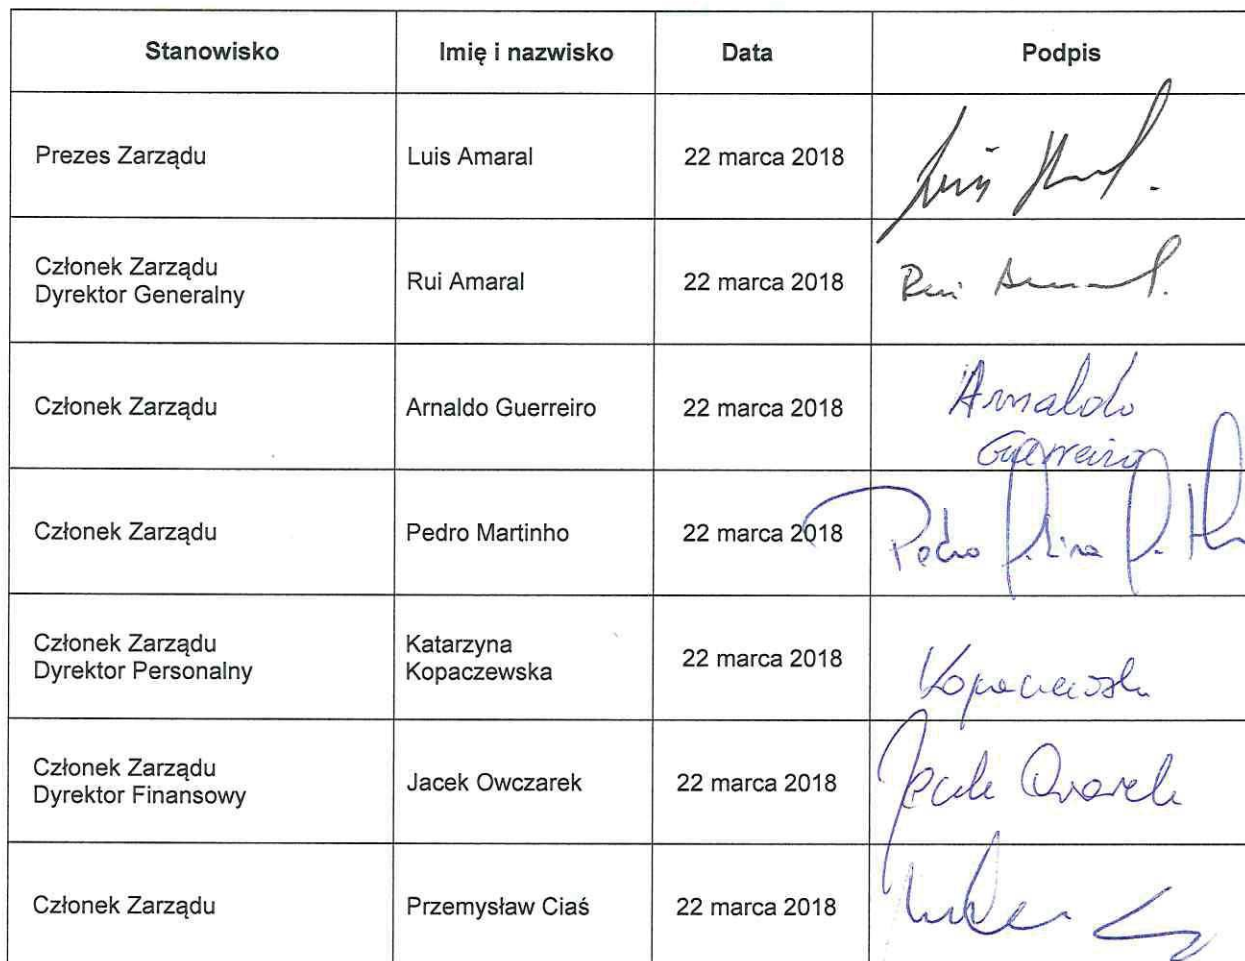 Stanowisko Imię i nazwisko Data Podpis
Prezes Zarządu Luis Amaral 22 marca 2018
Członek Zarządu
Dyrektor Generalny Rui Amaral 22 marca 2018 Rui Amaral
Członek Zarządu Arnaldo Guerreiro 22 marca 2018 Arnaldo
Guerreiro
Członek Zarządu Pedro Martinho 22 marca 2018 Pedro
Członek Zarządu
Dyrektor Personalny Katarzyna
Kopaczewska 22 marca 2018 Kopaczewska
Członek Zarządu
Dyrektor Finansowy Jacek Owczarek 22 marca 2018 Jacek Owczarek
Członek Zarządu Przemysław Ciaś 22 marca 2018